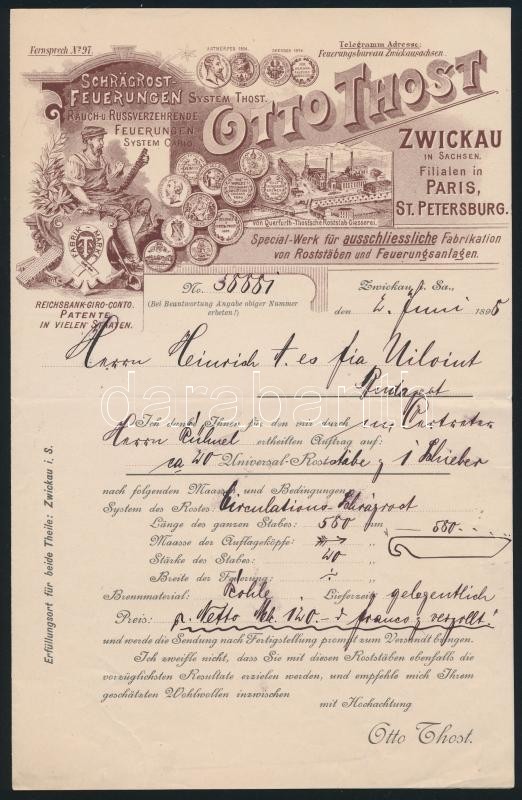 Fernsprech No 97.
ANTWERPEN 1894. DRESDEN 1894.
Telegramm Adresse:
Feuerungsbureau Zwickausachsen.
SCHRÄGROST-
FEUERUNGEN SYSTEM THOST.
RAUCH- U. RUSSVERZEHRENDE
FEUERUNGEN
SYSTEM CARIO.
OTTO THOST
ZWICKAU
IN SACHSEN.
Filialen in
PARIS,
ST. PETERSBURG.
von Querfurth-Thost'sche Roststab-Giesserei.
FABRIK MARKE
Special-Werk für ausschliessliche Fabrikation
von Roststäben und Feuerungsanlagen.
REICHSBANK-GIRO-CONTO.
PATENTE
IN VIELEN STAATEN.
No. 35551
(Bei Beantwortung Angabe obiger Nummer
erbeten!)
Zwickau i. Sa.,
den 2. Juni 1895
Herrn Heinrich A. es fia
Budapest
darabanth
Ich danke Ihnen für den mir durch m. Vertreter
Herrn ertheilten Auftrag auf:
ca 20 Universal-Roststäbe & 1 Schieber
nach folgenden Maassen und Bedingungen
System des Rostes: Circulations-Schrägrost
Länge des ganzen Stabes: 550 mm 550
Maasse der Auflageköpfe: „
Stärke des Stabes: 20 „
Breite der Feuerung: „
Brennmaterial: Kohle Lieferzeit: gelegentlich
Preis: p. Netto Mk. 120.– franco & verzollt!
und werde die Sendung nach Fertigstellung prompt zum Versandt bringen.
Ich zweifle nicht, dass Sie mit diesen Roststäben ebenfalls die
vorzüglichsten Resultate erzielen werden, und empfehle mich Ihrem
geschätzten Wohlwollen inzwischen
mit Hochachtung
Otto Thost.
Erfüllungsort für beide Theile: Zwickau i. S.